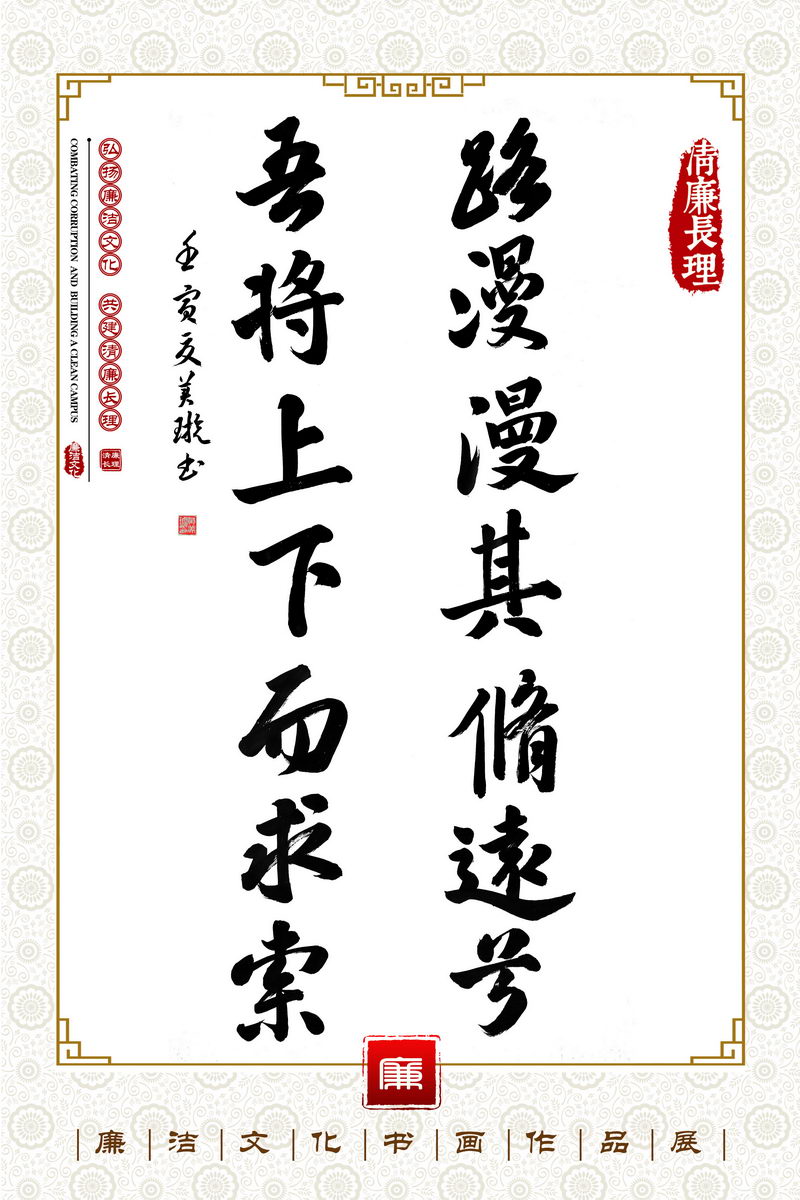 清廉長理
路漫漫其脩遠兮
吾將上下而求索
壬寅夏美璇书
弘扬廉洁文化 共建清廉长理
COMBATING CORRUPTION AND BUILDING A CLEAN CAMPUS
廉洁文化
廉
廉洁文化书画作品展